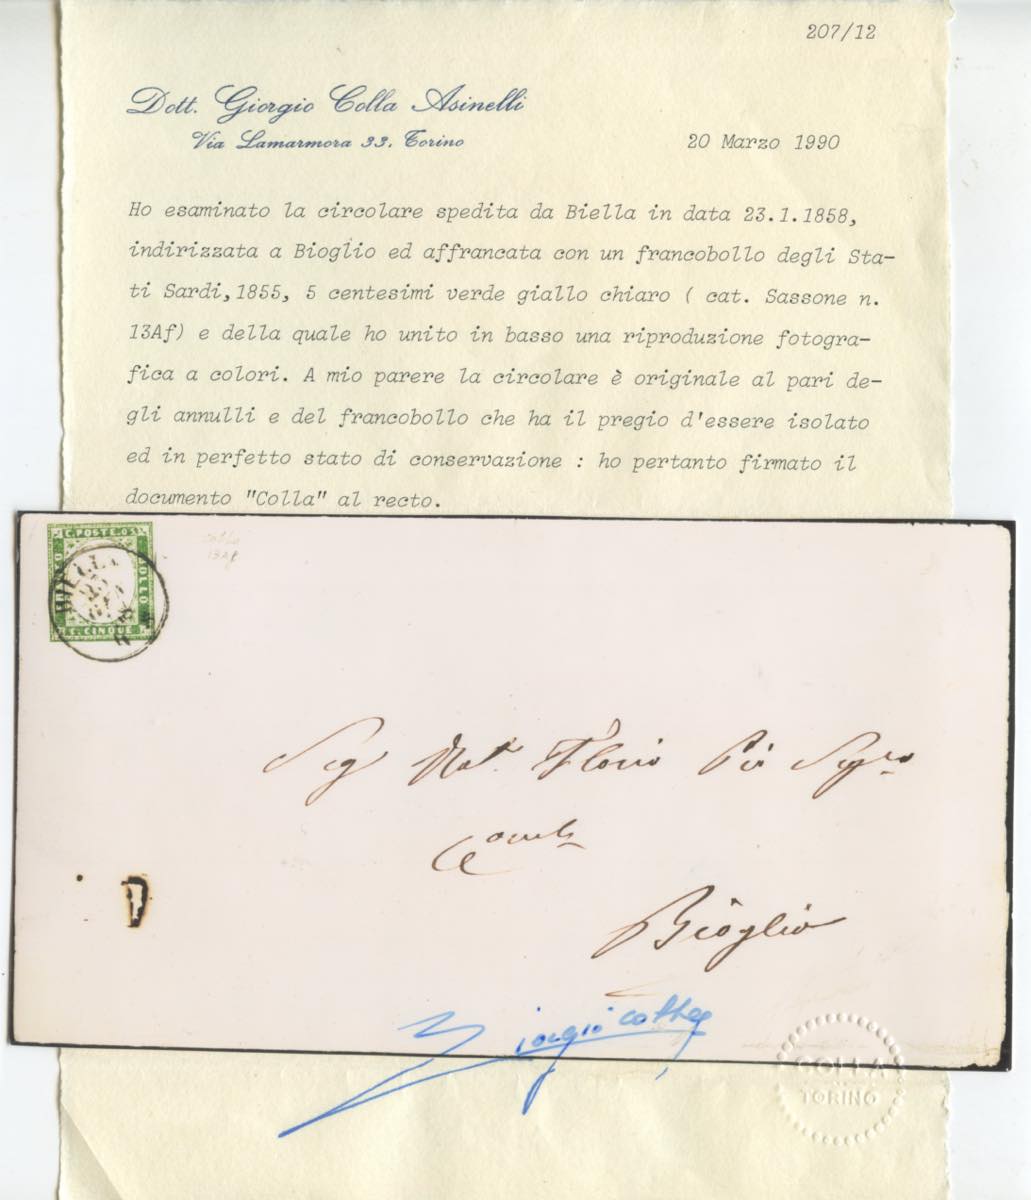 207/12
Dott. Giorgio Colla Asinelli
Via Lamarmora 33. Torino
20 Marzo 1990
Ho esaminato la circolare spedita da Biella in data 23.1.1858,
indirizzata a Bioglio ed affrancata con un francobollo degli Sta-
ti Sardi,1855, 5 centesimi verde giallo chiaro ( cat. Sassone n.
13Af) e della quale ho unito in basso una riproduzione fotogra-
fica a colori. A mio parere la circolare è originale al pari de-
gli annulli e del francobollo che ha il pregio d'essere isolato
ed in perfetto stato di conservazione : ho pertanto firmato il
documento "Colla" al recto.
C. POSTE. 05
BOLLO
C. CINQUE
BIELLA
13Af
Sig Not. Florio
Bioglio
Giorgio Colla
COLLA
TORINO